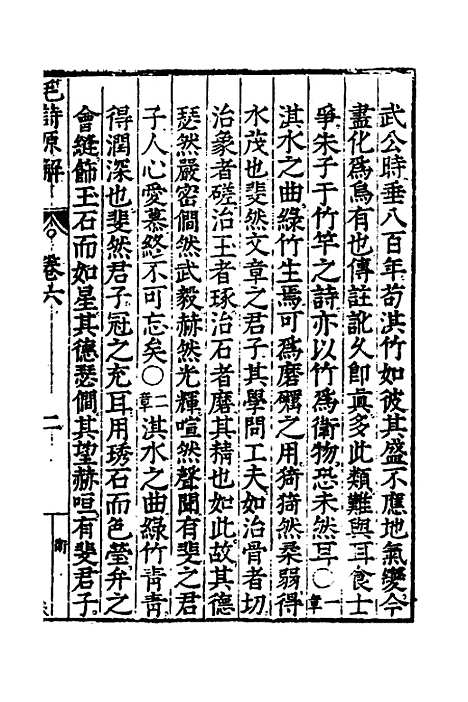 武公時垂八百年苟淇竹如彼其盛不應地氣變今
盡化為烏有也傳註訛久卽眞多此類難與耳食士
爭朱子于竹竿之詩亦以竹為衛物恐未然耳○一章
淇水之曲綠竹生焉可為磨礪之用猗猗然柔弱得
水茂也斐然文章之君子其學問工夫如治骨者切
治象者磋治玉者琢治石者磨其精也如此故其德
瑟然嚴密僩然武毅赫然光輝喧然聲聞有斐之君
子人心愛慕終不可忘矣○二章淇水之曲綠竹青青
得潤深也斐然君子冠之充耳用琇石而色瑩弁之
會縫飾玉石而如星其德瑟僩其望赫咺有斐君子
毛詩原解 卷六 二 衛